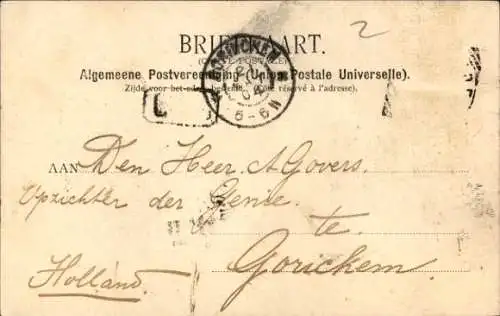 2
BRIEFKAART.
(CARTE POSTALE)
Algemeene Postvereeniging (Union Postale Universelle).
Zijde voor het adres bestemd. (Côté réservé à l'adresse).
GORINCHEM
5-6N
L
AAN Den Heer A Govers.
Opzichter der Genie.
te
Gorichem.
Holland